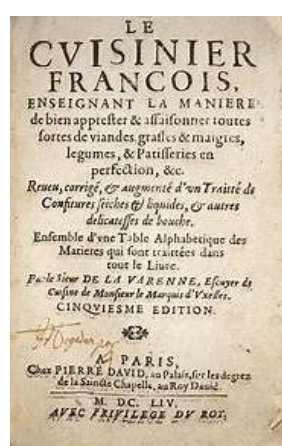 LE
CVISINIER
FRANCOIS,
ENSEIGNANT LA MANIERE
de bien apprester & assaisonner toutes
sortes de viandes, grasses & maigres,
legumes, & Patisseries en
perfection, &c.
Reueu, corrigé, & augmenté d'vn Traitté de
Confitures seiches & liquides, & autres
delicatesses de bouche.
Ensemble d'vne Table Alphabetique des
Matieres qui sont traittées dans
tout le Liure.
Par le Sieur DE LA VARENNE, Escuyer de
Cuisine de Monsieur le Marquis d'Vxelles.
CINQVIESME EDITION.
A PARIS,
Chez PIERRE DAVID, au Palais, sur les degrez
de la Saincte Chapelle, au Roy Dauid.
M. DC. LIV.
AVEC PRIVILEGE DV ROY.